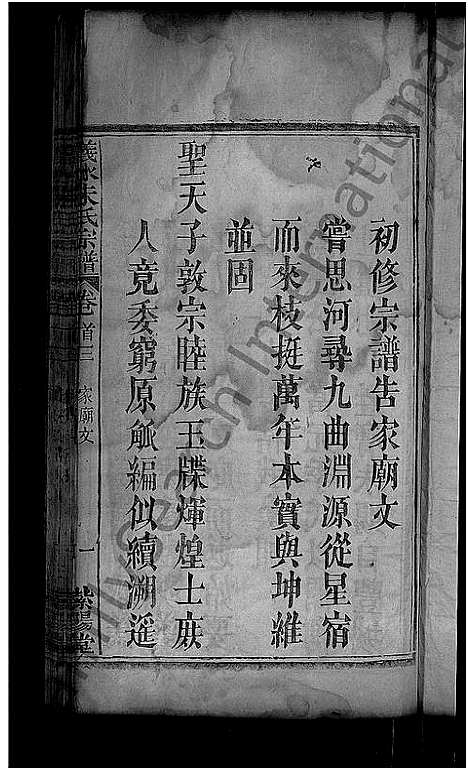 初修宗譜告家廟文
嘗思河尋九曲淵源從星宿
而來枝挺萬年本實與坤維
並固
聖天子敦宗睦族玉牒煇煌士庶
人竟委窮原觚編似續溯遥
義水朱氏宗譜
卷首三
家廟文
一
紫陽堂
MyHeritage International